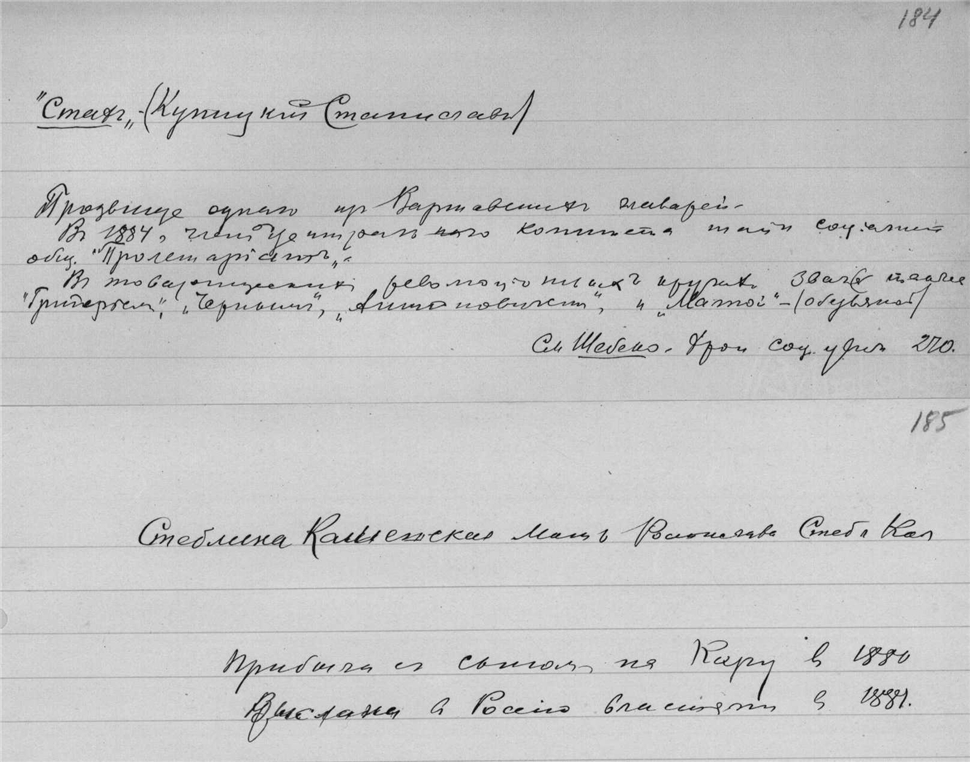 184
"Стахъ„ - (Куницкій Станиславъ)
Прозвище одного изъ Варшавскихъ главарей -
Въ 1884 г. членъ Центральнаго комитета тайн. соціалист.
общ. "Пролетаріатъ„.
Въ товарищескихъ революціонныхъ кружкахъ звали также
"Чернымъ", „Антоновичемъ", и
См Шебеко. Хрон соц. движ 270.
185
Стеблина Каменская Мать Стебл Кам
Прибыла съ сыномъ на Кару въ 1880
Выслана въ Россію властями въ 1881.